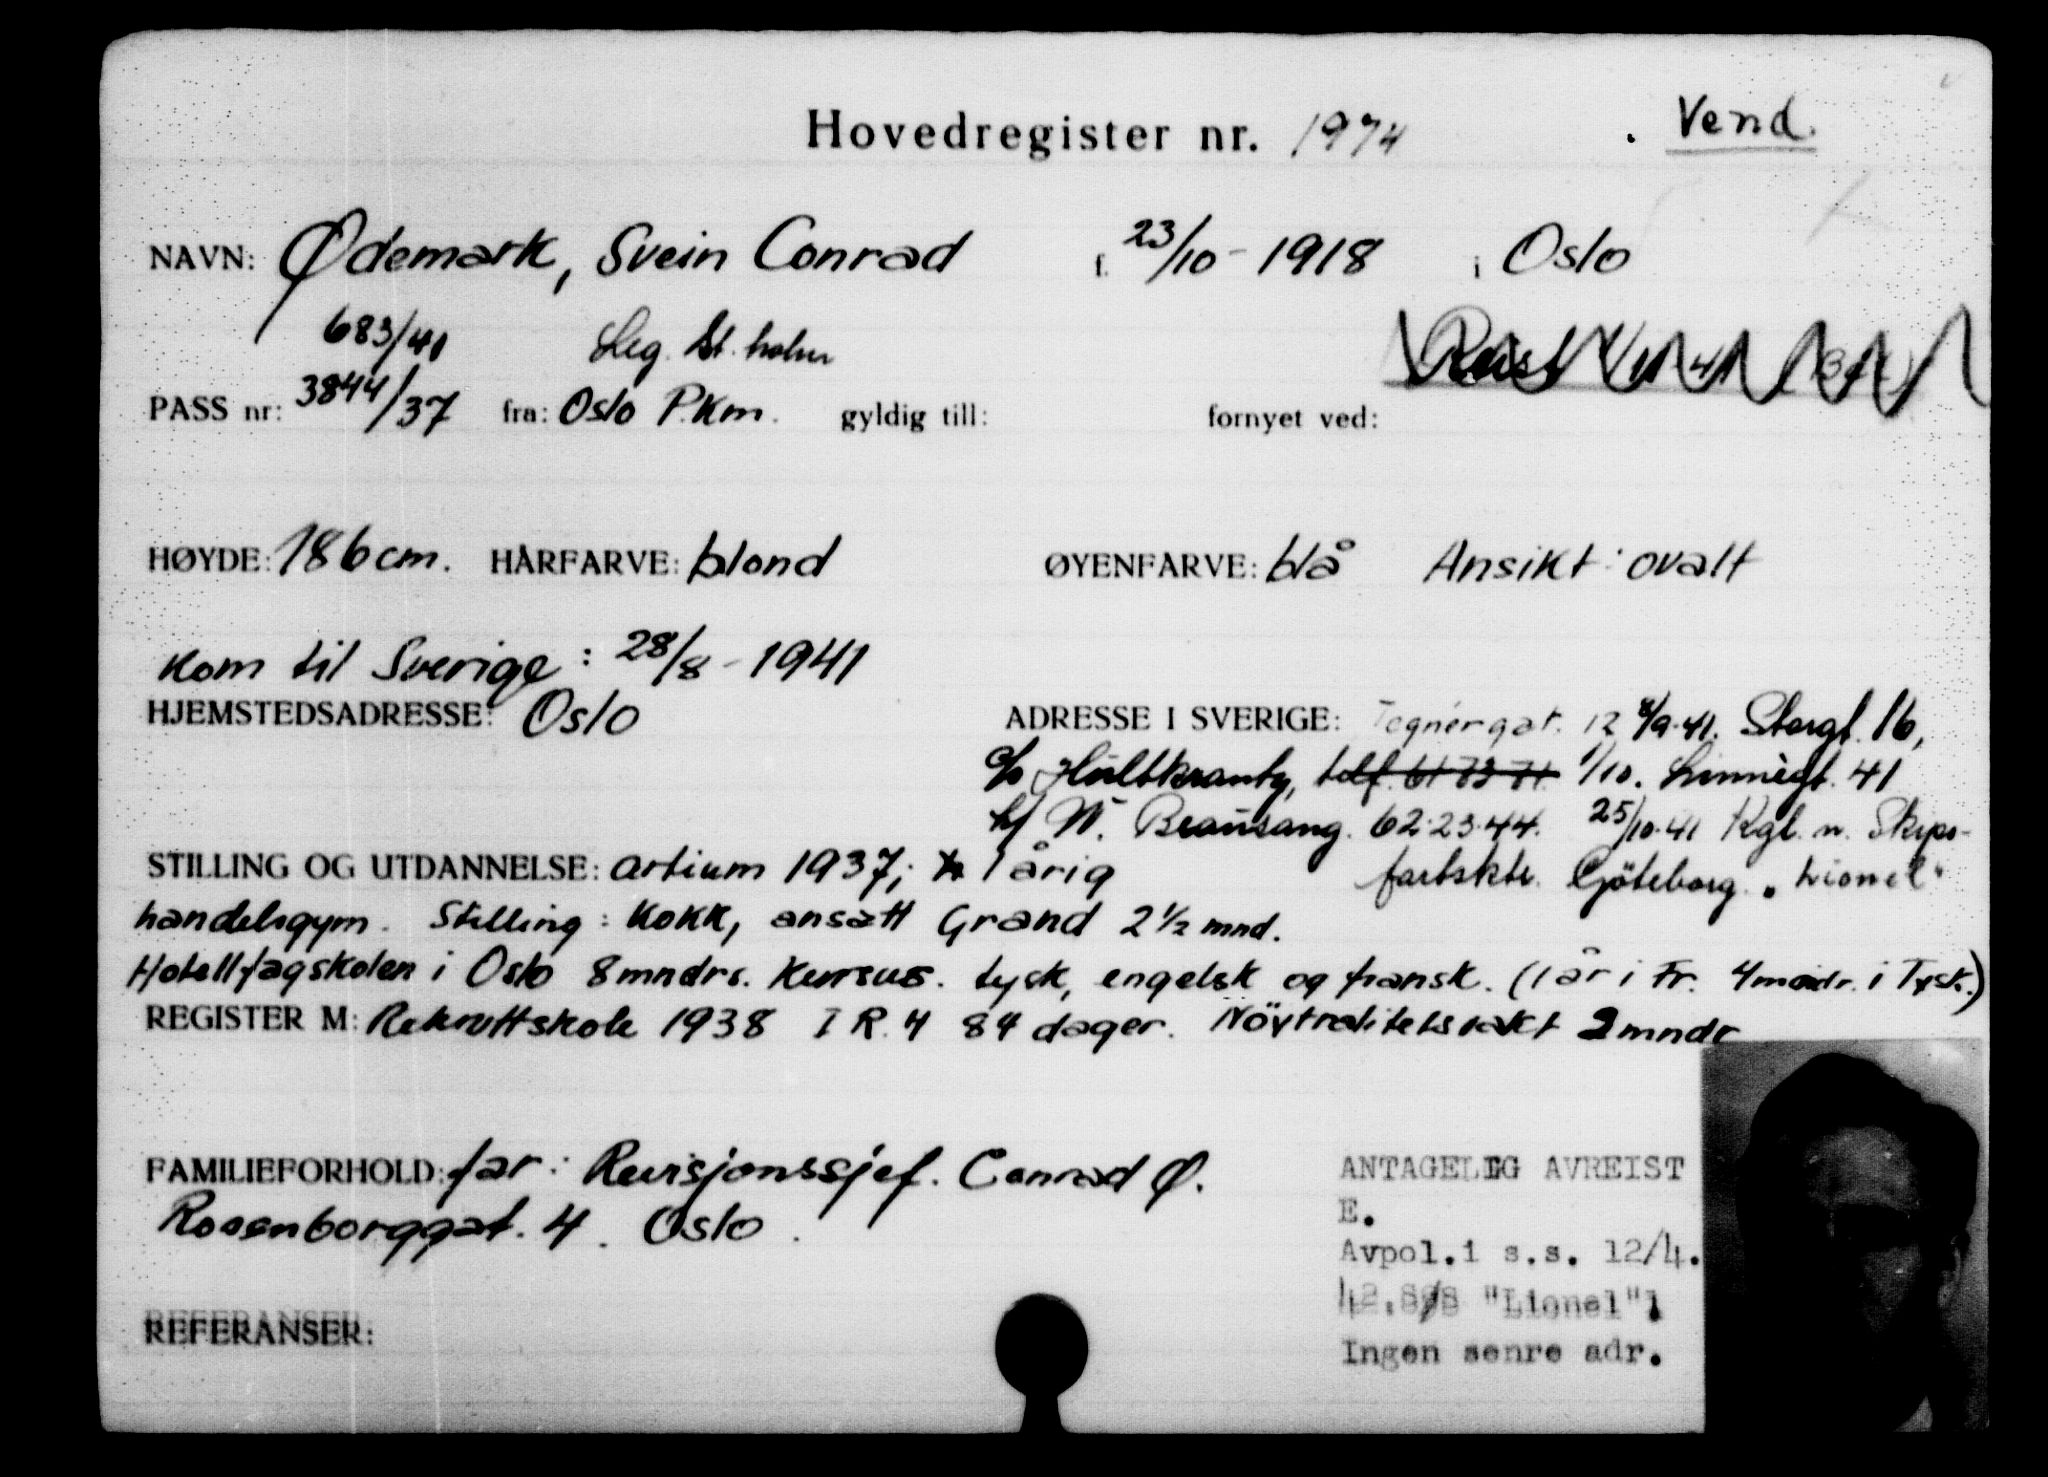 Hovedregister nr. 1974 . Vend.
NAVN: Ødemark, Svein Conrad f. 23/10 - 1918 i Oslo
683/41 Leg. St. holm
PASS nr: 3844/37 fra: Oslo P.Km. gyldig till: fornyet ved:
HØYDE: 186 cm. HÅRFARVE: blond ØYENFARVE: blå Ansikt: ovalt
Kom til Sverige: 28/8 - 1941
HJEMSTEDSADRESSE: Oslo
ADRESSE I SVERIGE: Tegnérgat. 12 8/9.41. Storgt. 16,
c/o Hultkrantz, telf. 61 73 71. 1/10. Linnégt. 41
W. Beausang. 62.23.44. 25/10.41 Kgl. n. Skips-
fartsktr. Göteborg. "Lionel"
STILLING OG UTDANNELSE: artium 1937; 1 årig
handelsgym. Stilling: Kokk, ansatt Grand 2 1/2 mnd.
Hotellfagskolen i Oslo 8 mndrs. Kursus. tysk, engelsk og fransk. (1 år i Fr. 4 mndr. i Tysk.)
REGISTER M: Rekruttskole 1938 I R. 4 84 dager. Nöytralitetsvakt 2 mndr
FAMILIEFORHOLD: far: Revisjonssjef. Conrad Ø.
Rosenborggat. 4. Oslo.
ANTAGELIG AVREIST
E.
Avpol.i s.s. 12/4.
42. "Lionel"
Ingen senre adr.
REFERANSER: